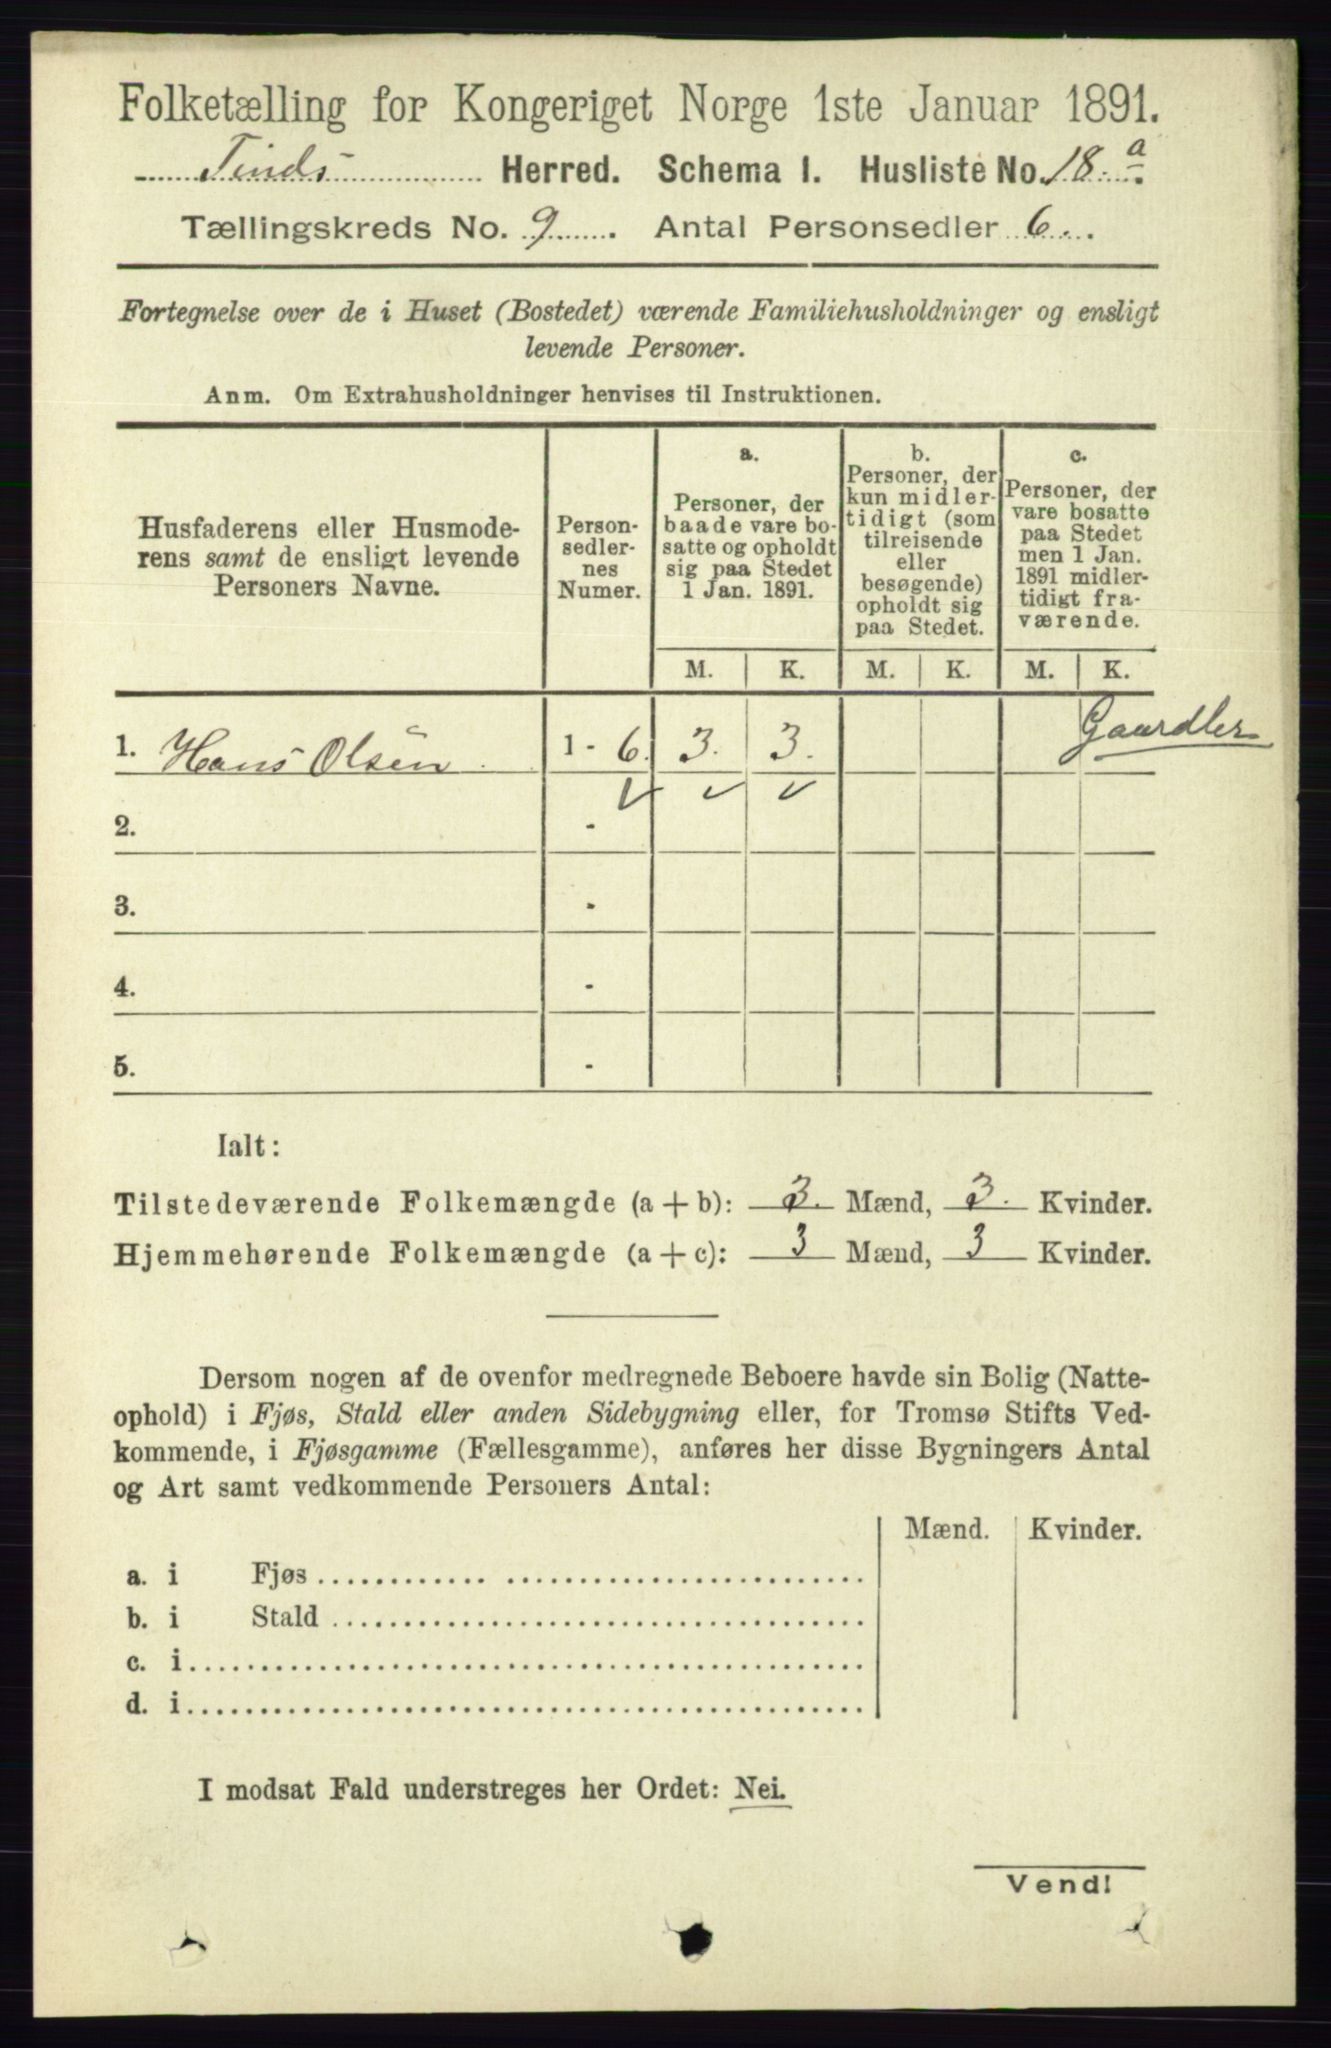 Folketælling for Kongeriget Norge 1ste Januar 1891.
Tinds Herred. Schema I. Husliste No. 18 a.
Tællingskreds No. 9. Antal Personsedler 6.
Fortegnelse over de i Huset (Bostedet) værende Familiehusholdninger og ensligt
levende Personer.
Anm. Om Extrahusholdninger henvises til Instruktionen.
Husfaderens eller Husmode-
rens samt de ensligt levende
Personers Navne.
Person-
sedler-
nes
Numer.
a.
Personer, der
baade vare bo-
satte og opholdt
sig paa Stedet
1 Jan. 1891.
b.
Personer, der
kun midler-
tidigt (som
tilreisende
eller
besøgende)
opholdt sig
paa Stedet.
c.
Personer, der
vare bosatte
paa Stedet
men 1 Jan.
1891 midler-
tidigt fra-
værende.
M. K. M. K. M. K.
1. Hans Olsen 1 - 6. 3. 3.
2. -
3. -
4. -
5. -
Ialt:
Tilstedeværende Folkemængde (a + b): 3. Mænd, 3. Kvinder.
Hjemmehørende Folkemængde (a + c): 3 Mænd, 3 Kvinder.
Dersom nogen af de ovenfor medregnede Beboere havde sin Bolig (Natte-
ophold) i Fjøs, Stald eller anden Sidebygning eller, for Tromsø Stifts Ved-
kommende, i Fjøsgamme (Fællesgamme), anføres her disse Bygningers Antal
og Art samt vedkommende Personers Antal:
Mænd. Kvinder.
a. i Fjøs
b. i Stald
c. i
d. i
I modsat Fald understreges her Ordet: Nei.
Vend!